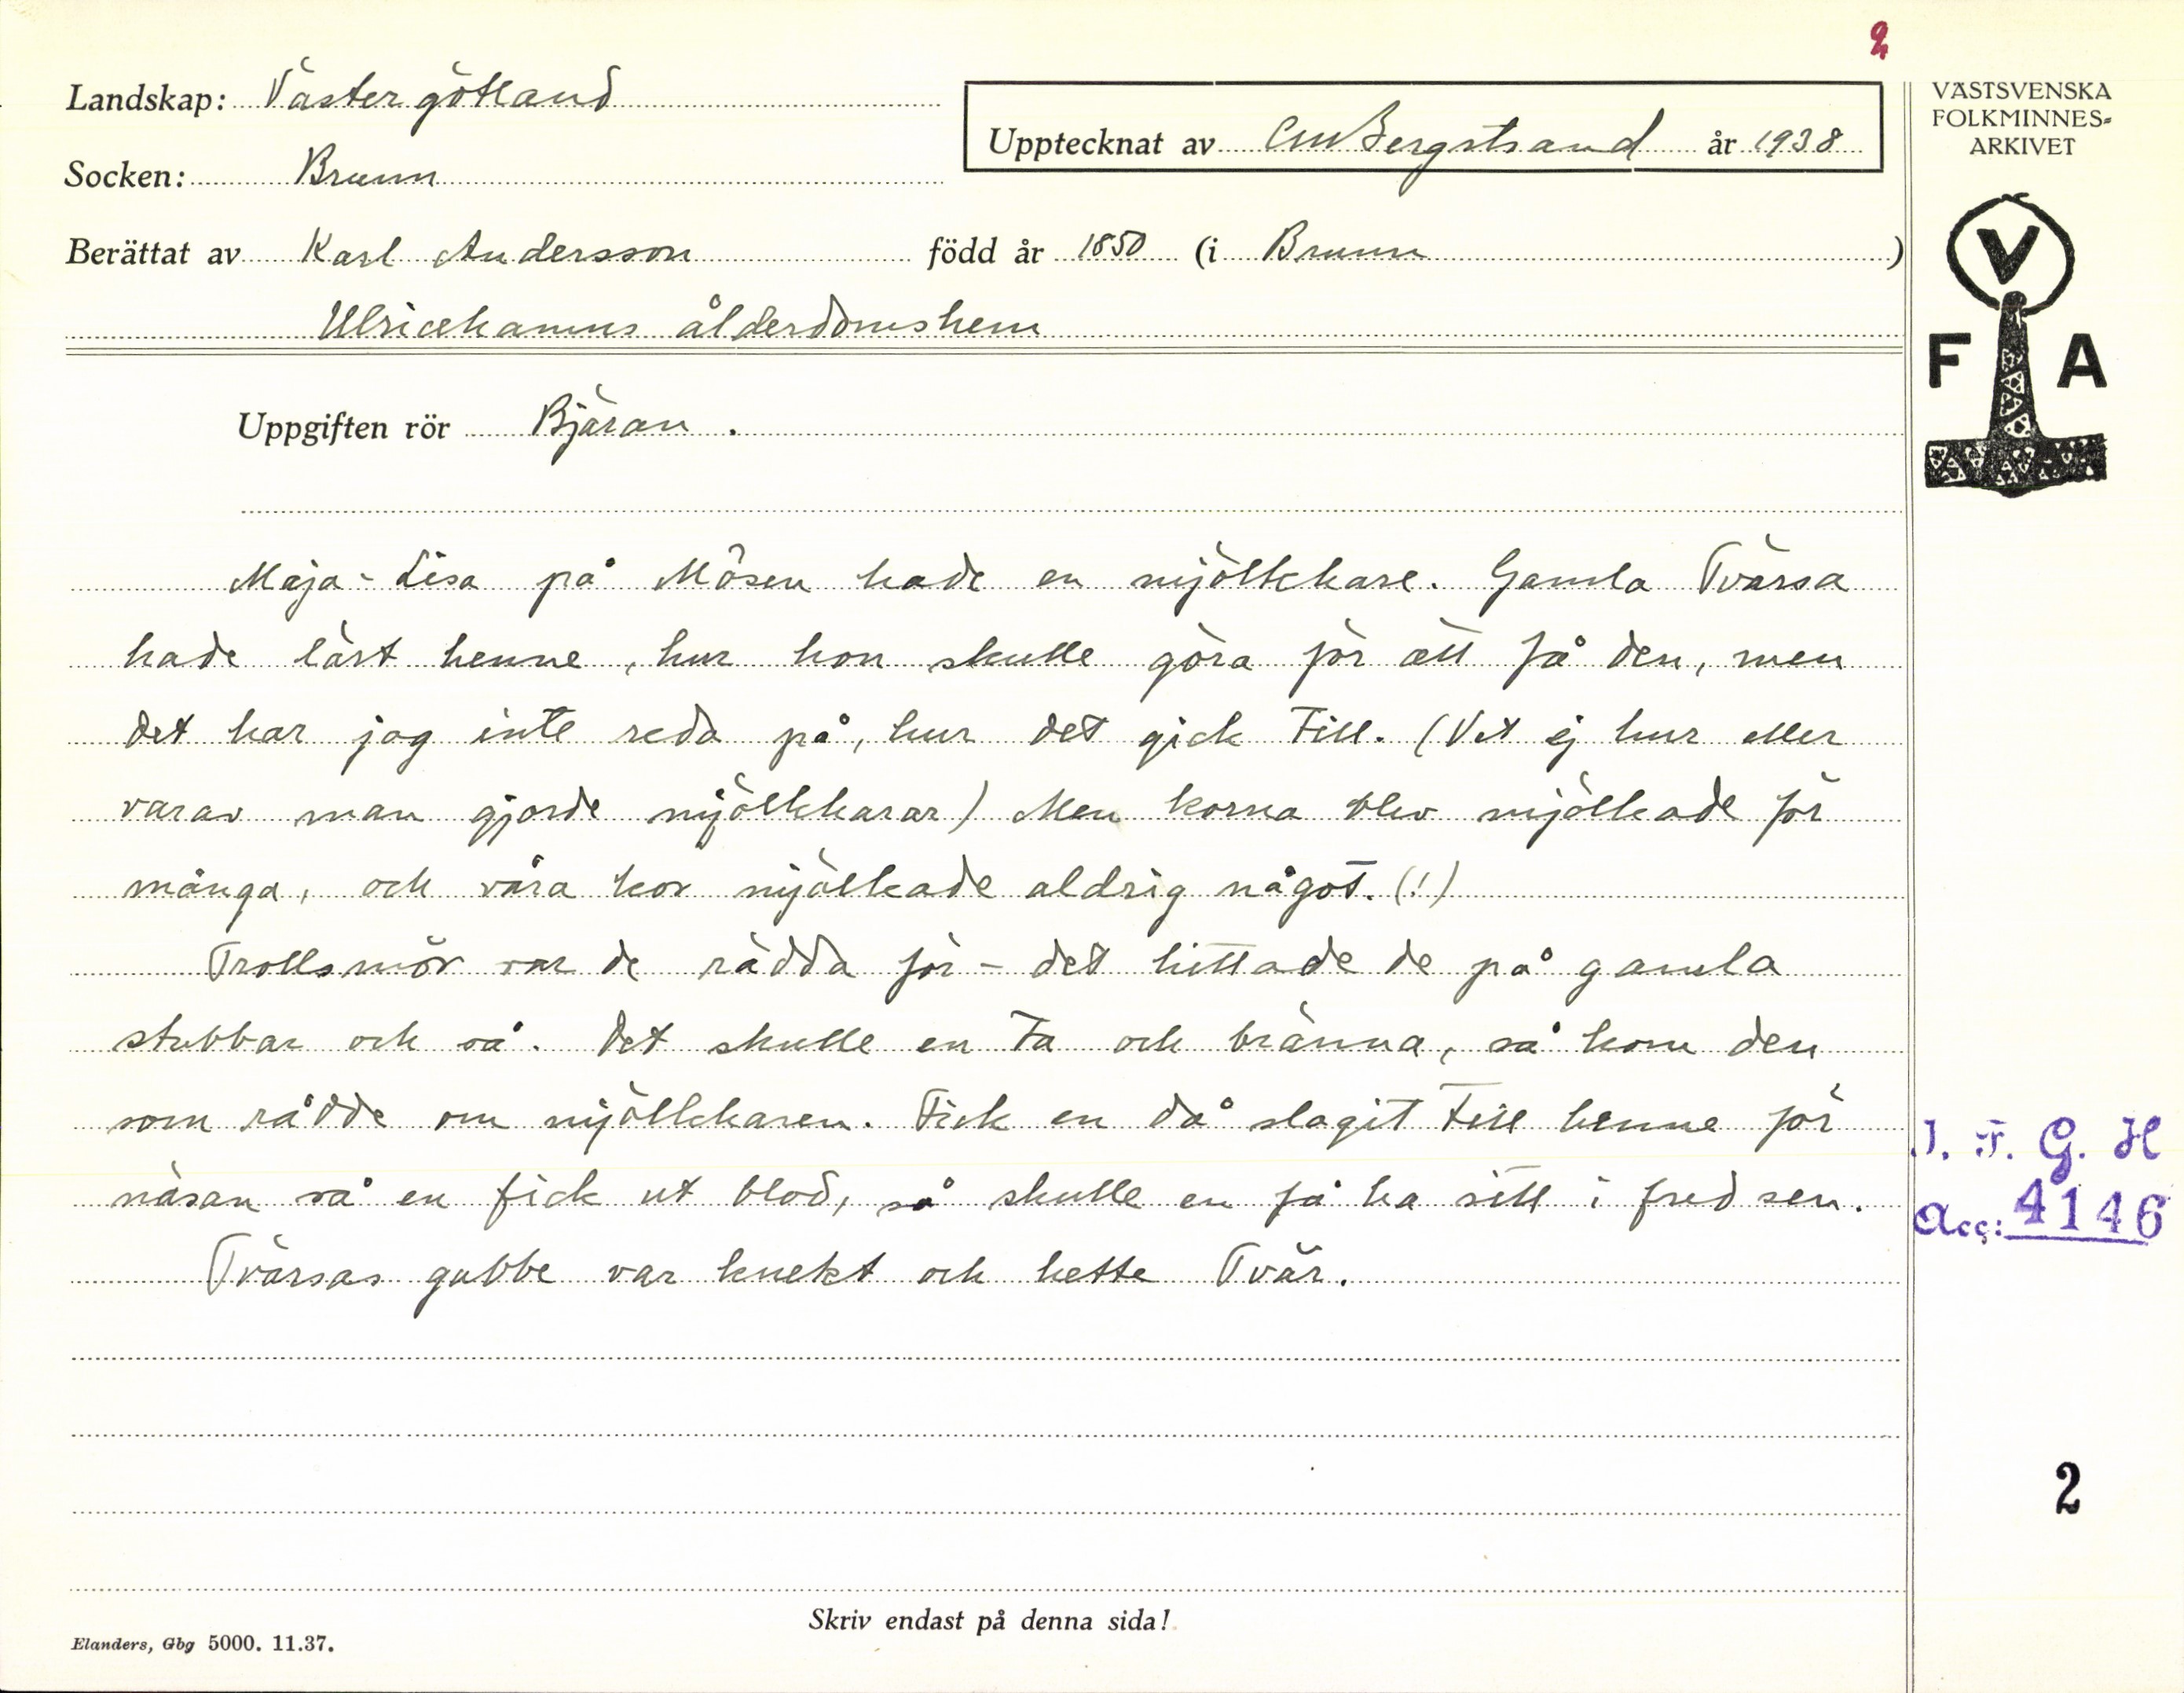 2
Landskap: Västergötland
Upptecknat av CMBergstrand år 1938
VÄSTSVENSKA
FOLKMINNES-
ARKIVET
Socken: Brunn
Berättat av Karl Andersson född år 1850 (i Brunn)
Ulricehamns ålderdomshem
V
F A
Uppgiften rör Bjäran.
Maja-Lisa på Mosen hade en mjölkhare. Gamla Tvärsa
hade lärt henne, hur hon skulle göra för att få den, men
det har jag inte reda på, hur det gick till. (Vet ej hur eller
varav man gjorde mjölkharar) Men korna blev mjölkade för
många, och våra kor mjölkade aldrig något. (!)
Trollsmör var de rädda för - det hittade de på gamla
stubbar och så. Det skulle en ta och bränna, så kom den
som rådde om mjölkharen. Fick en då slagit till henne för
näsan så en fick ut blod, så skulle en få ha sitt i fred sen.
Tvärsas gubbe var knekt och hette Tvär.
I. F. G. H
Acc: 4146
2
Skriv endast på denna sida!
Elanders, Gbg 5000. 11.37.